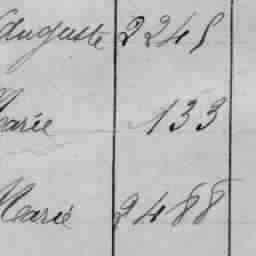 Auguste 2245
Marie 133
Marie 2488